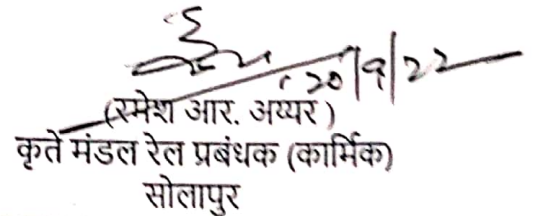 20/9/22
(रमेश आर. अय्यर)
कृते मंडल रेल प्रबंधक (कार्मिक)
सोलापुर